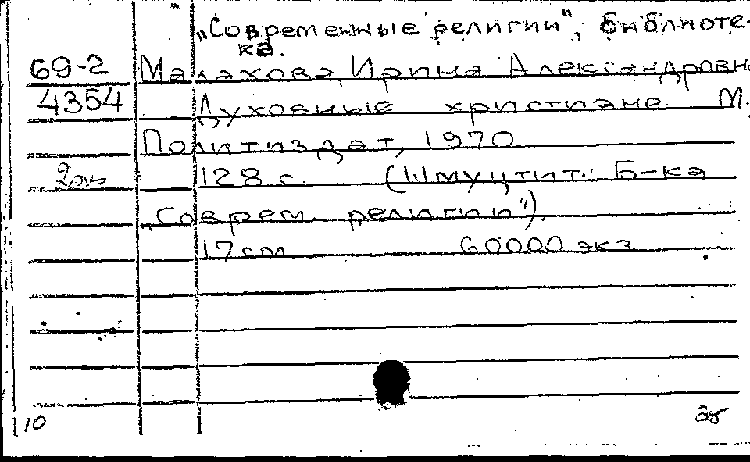 „Современные религии", библиоте-
ка.
69-2 Малахова, Ирина Александровн
4354 Духовные христиане. М.,
Политиздат, 1970.
2эк 128 с. (Шмуцтит.: Б-ка
„Соврем. религии").
17 см 60000 экз.
10